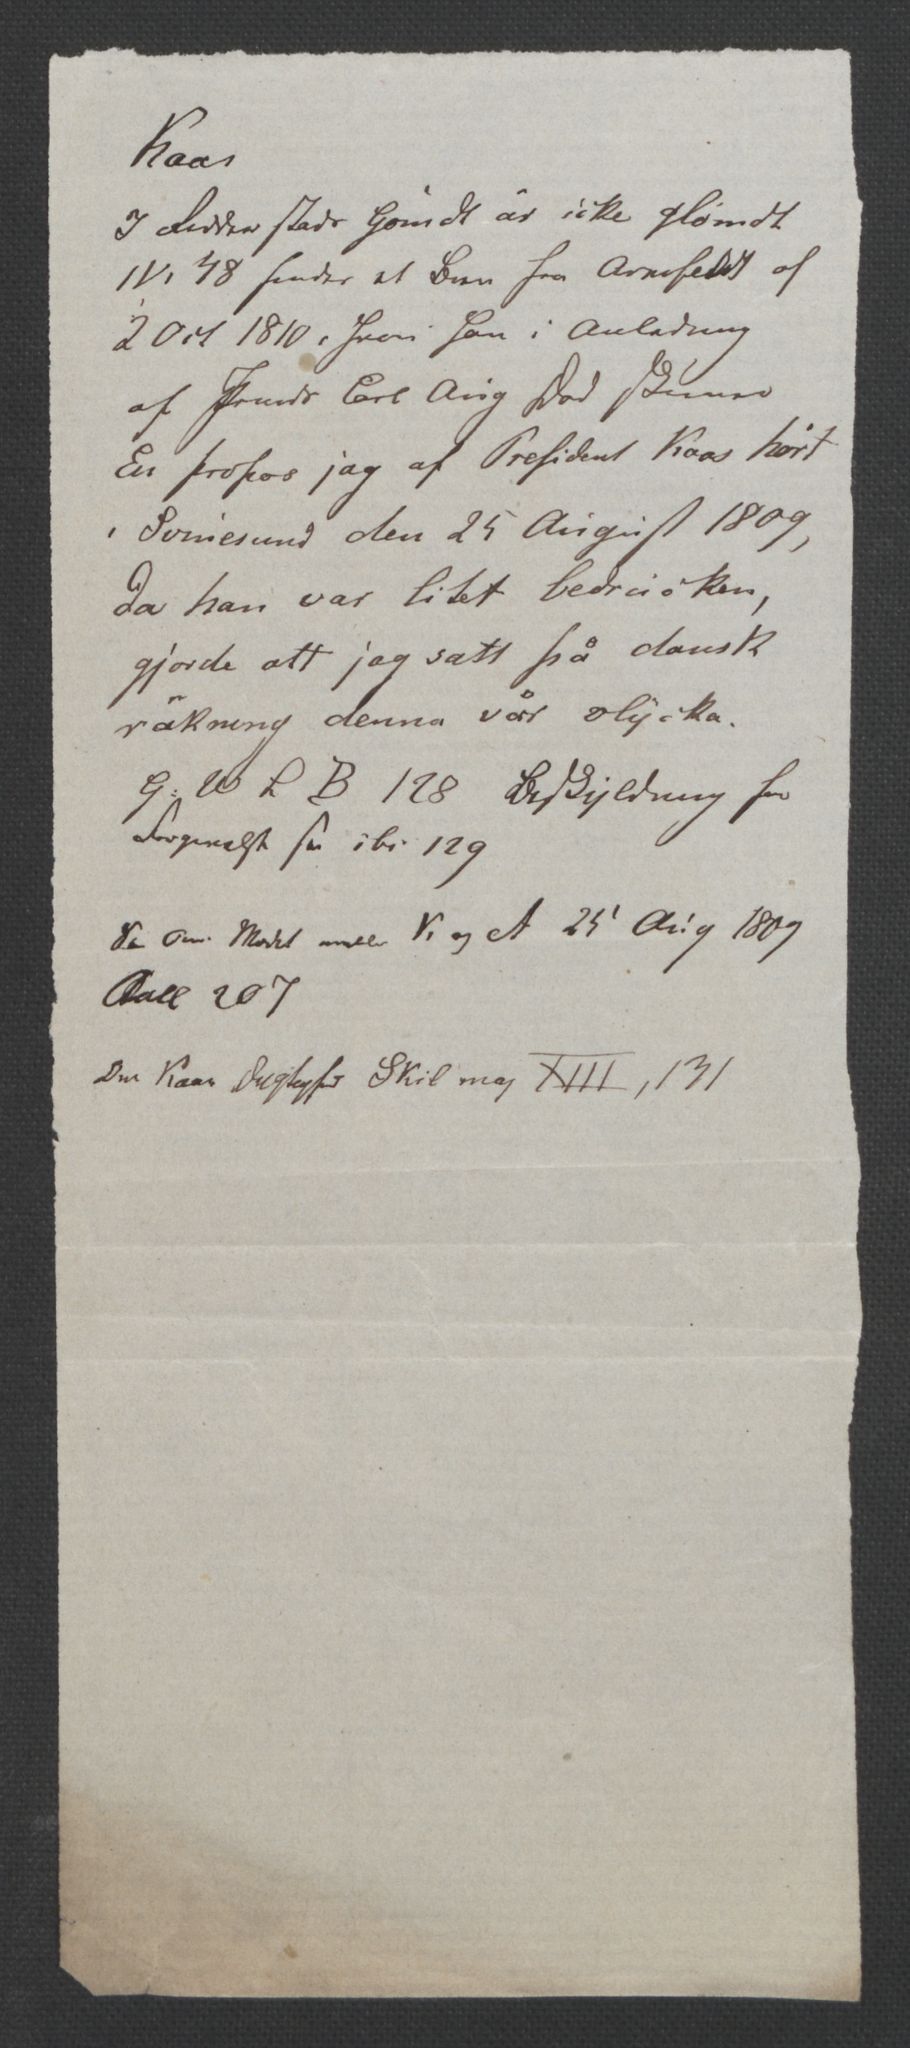 Kaas
I Ridderstads Gömdt är icke glömdt
IV, 48 findes et Brev fra Armfeldt af
2 Oct 1810, hvori han i Anledning
af Prinds Carl Aug Død skriver
En propos jag af President Kaas hört
i Svinesund den 25 August 1809,
da han var litet bedrucken,
gjorde att jag satt på dansk
räkning denna vår olycka.
G: W L B 128 Beskyldning for
ibi 129
om Mødet mellem K, og A 25 Aug 1809
Aall 207
Om Kaas Dygtighed Skilmag XIII, 131